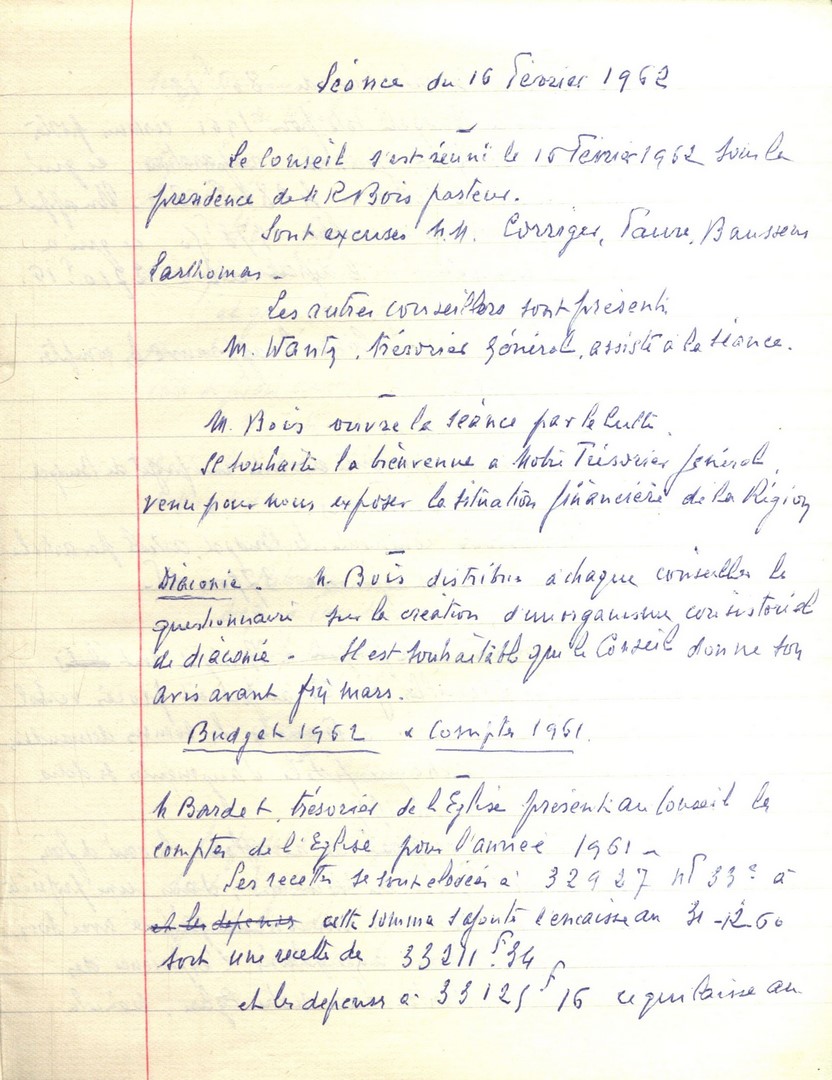 Séance du 16 Février 1962
Le Conseil s'est réuni le 16 Février 1962 sous la
présidence de M R Bois pasteur.
Sont excusés M.M. Corriger, Faure, Baussens
Sarthomas -
Les autres conseillers sont présents
M. Wantz, trésorier Général, assiste à la séance.
M. Bois ouvre la séance par le culte
Il souhaite la bienvenue a Notre Trésorier général,
venu pour nous exposer la situation financière de la Région
Diaconie. M. Bois distribue à chaque conseiller le
questionnaire sur la création d'un organisme consistorial
de diaconie - Il est souhaitable que le Conseil donne son
avis avant fin mars.
Budget 1962 & Comptes 1961.
M Bardet, trésorier de l'Eglise présente au Conseil les
comptes de l'Eglise pour l'année 1961 -
Les recettes se sont élevées à 32927 Nf 33 à
et les depenses cette somme s'ajoute l'encaisse au 31-12-60
soit une recette de 33211 f. 34
et les depenses a 33125 f 16 ce qui laisse au